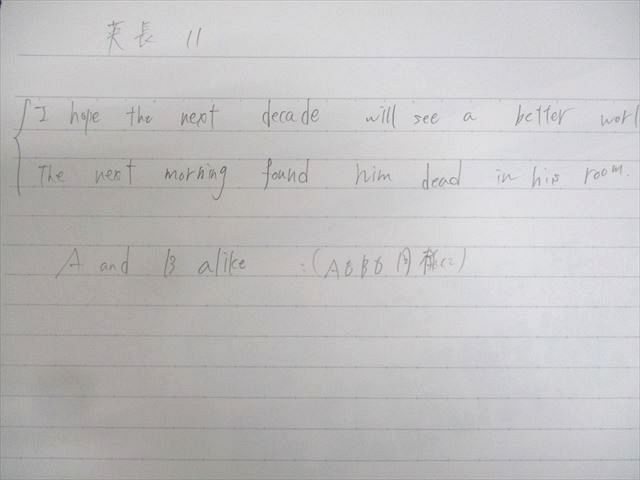 英長 11
I hope the next decade will see a better worl
The next morning found him dead in his room.
A and B alike :(AもBも同様に)